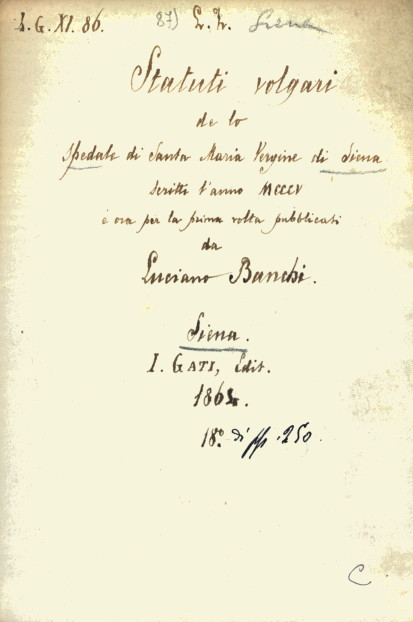 I. G. XI. 86. 87) L. L. Siena
Statuti volgari
de lo
Spedale di Santa Maria Vergine di Siena
scritti l'anno MCCCV
e ora per la prima volta pubblicati
da
Luciano Banchi.
Siena.
I. GATI, Edit.
1864.
18.º di pp. 250.
C.